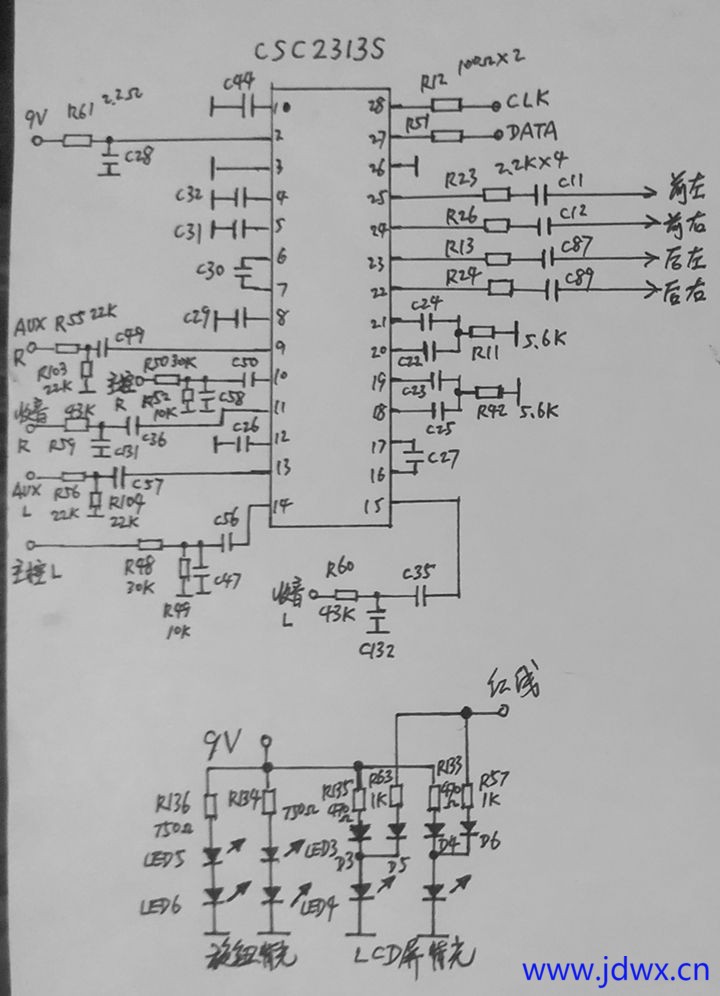 CSC2313S
9V R61 2.2Ω
C28
C44
1
2
3
C32
4
C31
5
C30
6
7
C29
8
AUX R55 22K
R
C49
9
R103
22K
主控
R
R50 30K
C50
10
R52
10K
C58
收音
R
43K
R59
C131
C36
11
C26
12
AUX
L
R56
22K
R104
22K
C57
13
C56
14
主控L
R48
30K
R49
10K
C47
28
R12
100Ω×2
CLK
27
R51
DATA
26
25
R23
2.2K×4
C11
前左
24
R26
C12
前右
23
R13
C87
后左
22
R24
C89
后右
21
C24
20
C22
R11
5.6K
19
C23
18
C25
R42
5.6K
17
16
C27
15
收音
L
R60
43K
C132
C35
红线
9V
R136
750Ω
R134
750Ω
R135
470Ω
R63
1K
R133
470Ω
R57
1K
LED5
LED3
D3
D5
D4
D6
LED6
LED4
旋钮背光
LCD屏背光
www.jdwx.cn